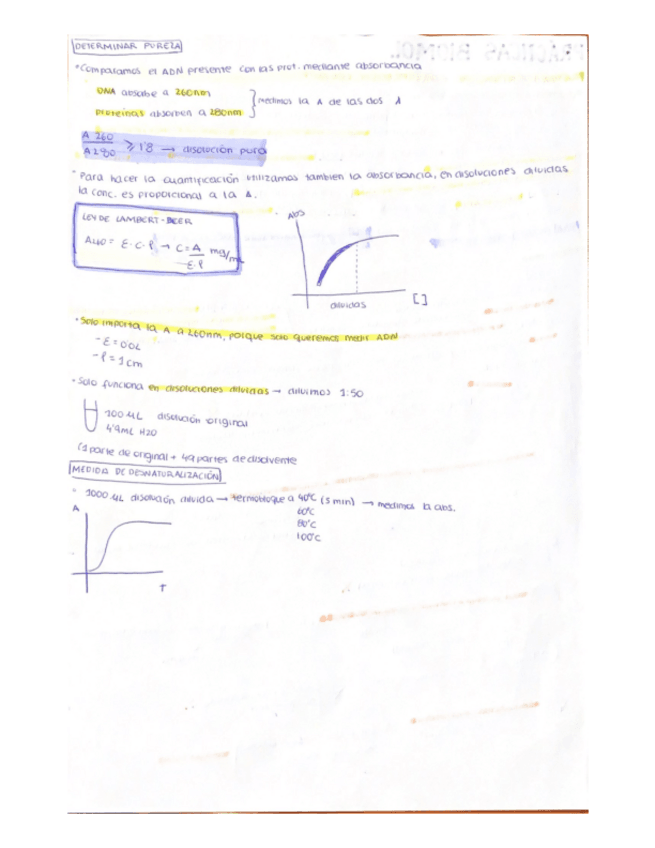 DETERMINAR PUREZA
* Comparamos el ADN presente con las prot. mediante absorbancia
DNA absorbe a 260nm
proteínas absorben a 280nm
medimos la A de las dos λ
A 260
A 280
≥ 1'8 → disolución pura
* Para hacer la cuantificación utilizamos también la absorbancia, en disoluciones diluidas
la conc. es proporcional a la A.
LEY DE LAMBERT-BEER
= ε·C·l → C = A / ε·l mg/mL
Abs
diluidas
[ ]
* Solo importa la A a 260nm, porque solo queremos medir ADN
- ε = 0'02
- l = 1cm
* Solo funciona en disoluciones diluidas → diluimos 1:50
100 µL disolución original
4'9mL H2O
(1 parte de original + 49 partes de disolvente
MEDIDA DE DESNATURALIZACIÓN
* 1000 µL disolución diluida → termobloque a 40ºC (5 min) → medimos la abs.
60ºC
80ºC
100ºC
A
T